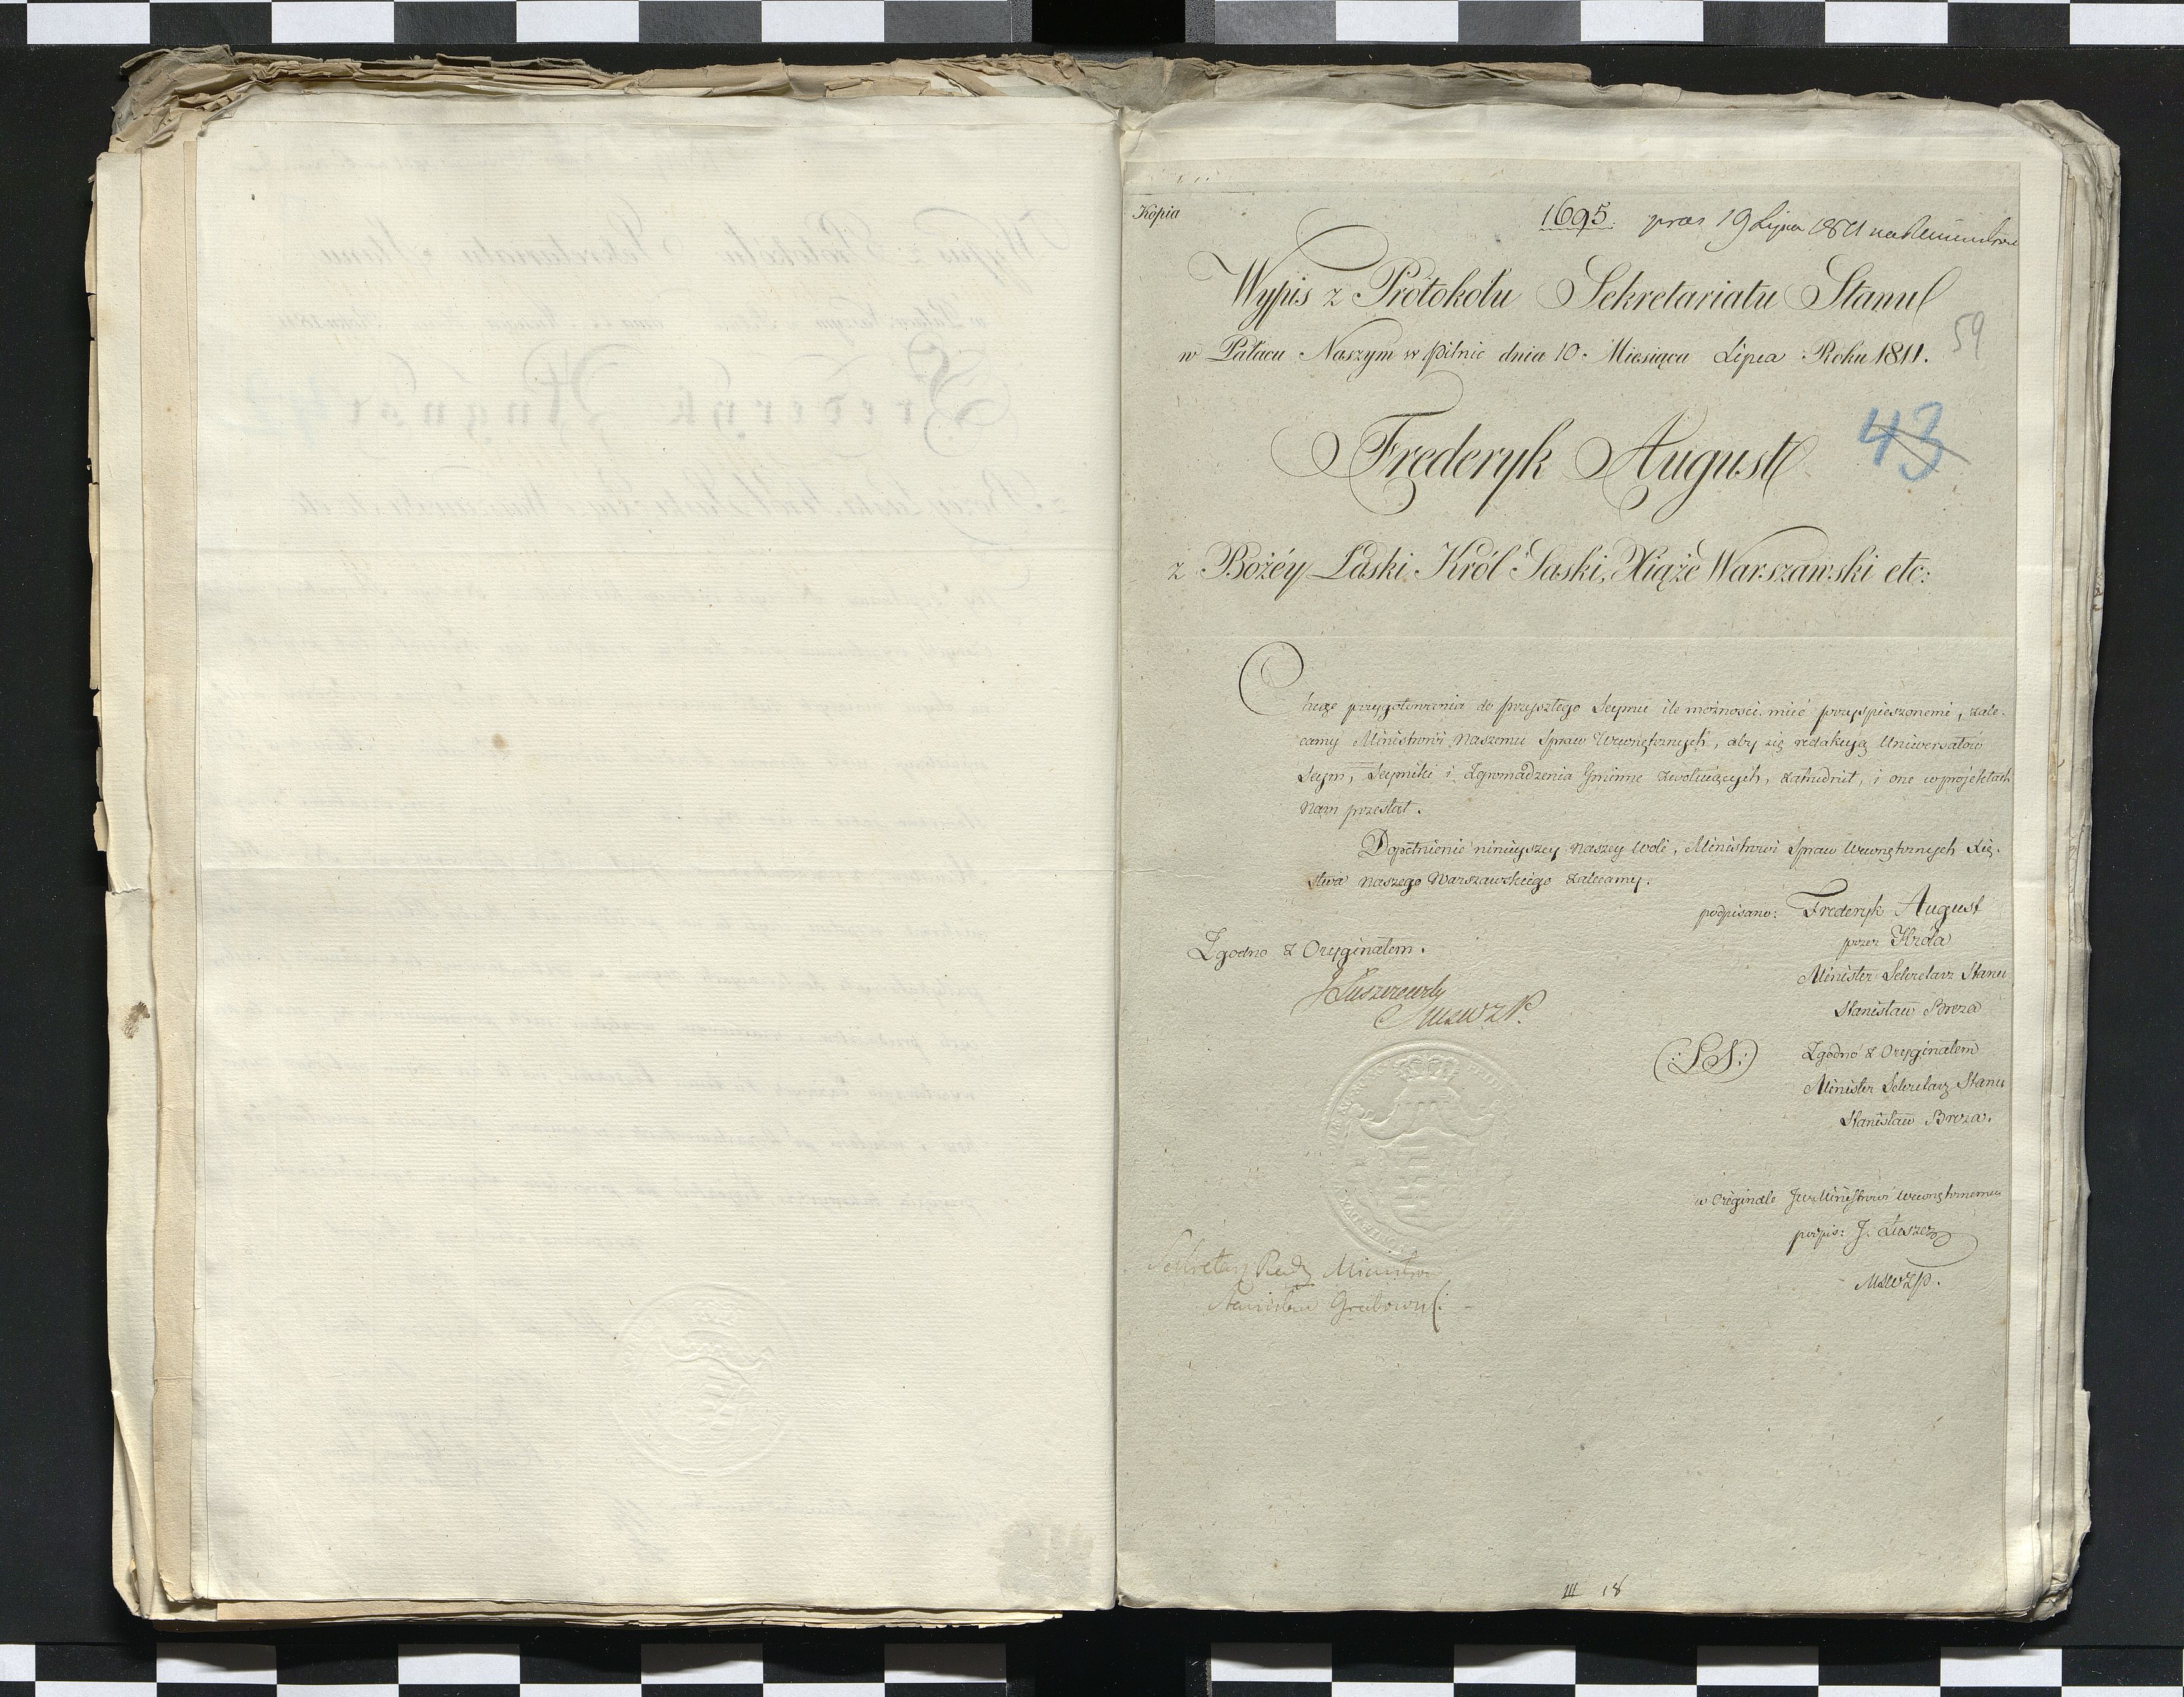 Kopia
1695. pras 19 Lipca 1811
Wypis z Protokołu Sekretariatu Stanu
59
w Pałacu Naszym w Pilnic dnia 10. Miesiąca Lipca Roku 1811.
Frederyk August
43
z Bożéy Łaski Król Saski, Xiąże Warszawski etc:
Chcąc przygotowania do przyszłego Seymu ile możności mieć przyspieszonemi, zale-
camy Ministrowi Naszemu Spraw Wewnętrznych, aby się redakcyą Uniwersałów
Seym, Seymiki i Zgromadzenia Gminne zwołuiących, zatrudnił, i one w projektach
Nam przesłał.
Dopełnienie ninieyszey Naszey Woli, Ministrowi Spraw Wewnętrznych Xię-
stwa Naszego Warszawskiego zalecamy.
podpisano: Frederyk August
przez Króla
Minister Sekretarz Stanu
Stanisław Breza
Zgodno z Oryginałem.
J Łuszczewski
MSWZP.
(:L.S.:)
Zgodno z Oryginałem
Minister Sekretarz Stanu
Stanisław Breza.
w Originale JW Ministrowi Wewnętrznemu
podpis: J. Łuszcz
MSWZP.
Sekretarz Rady Ministrów
Stanisław Grabowski
III 18